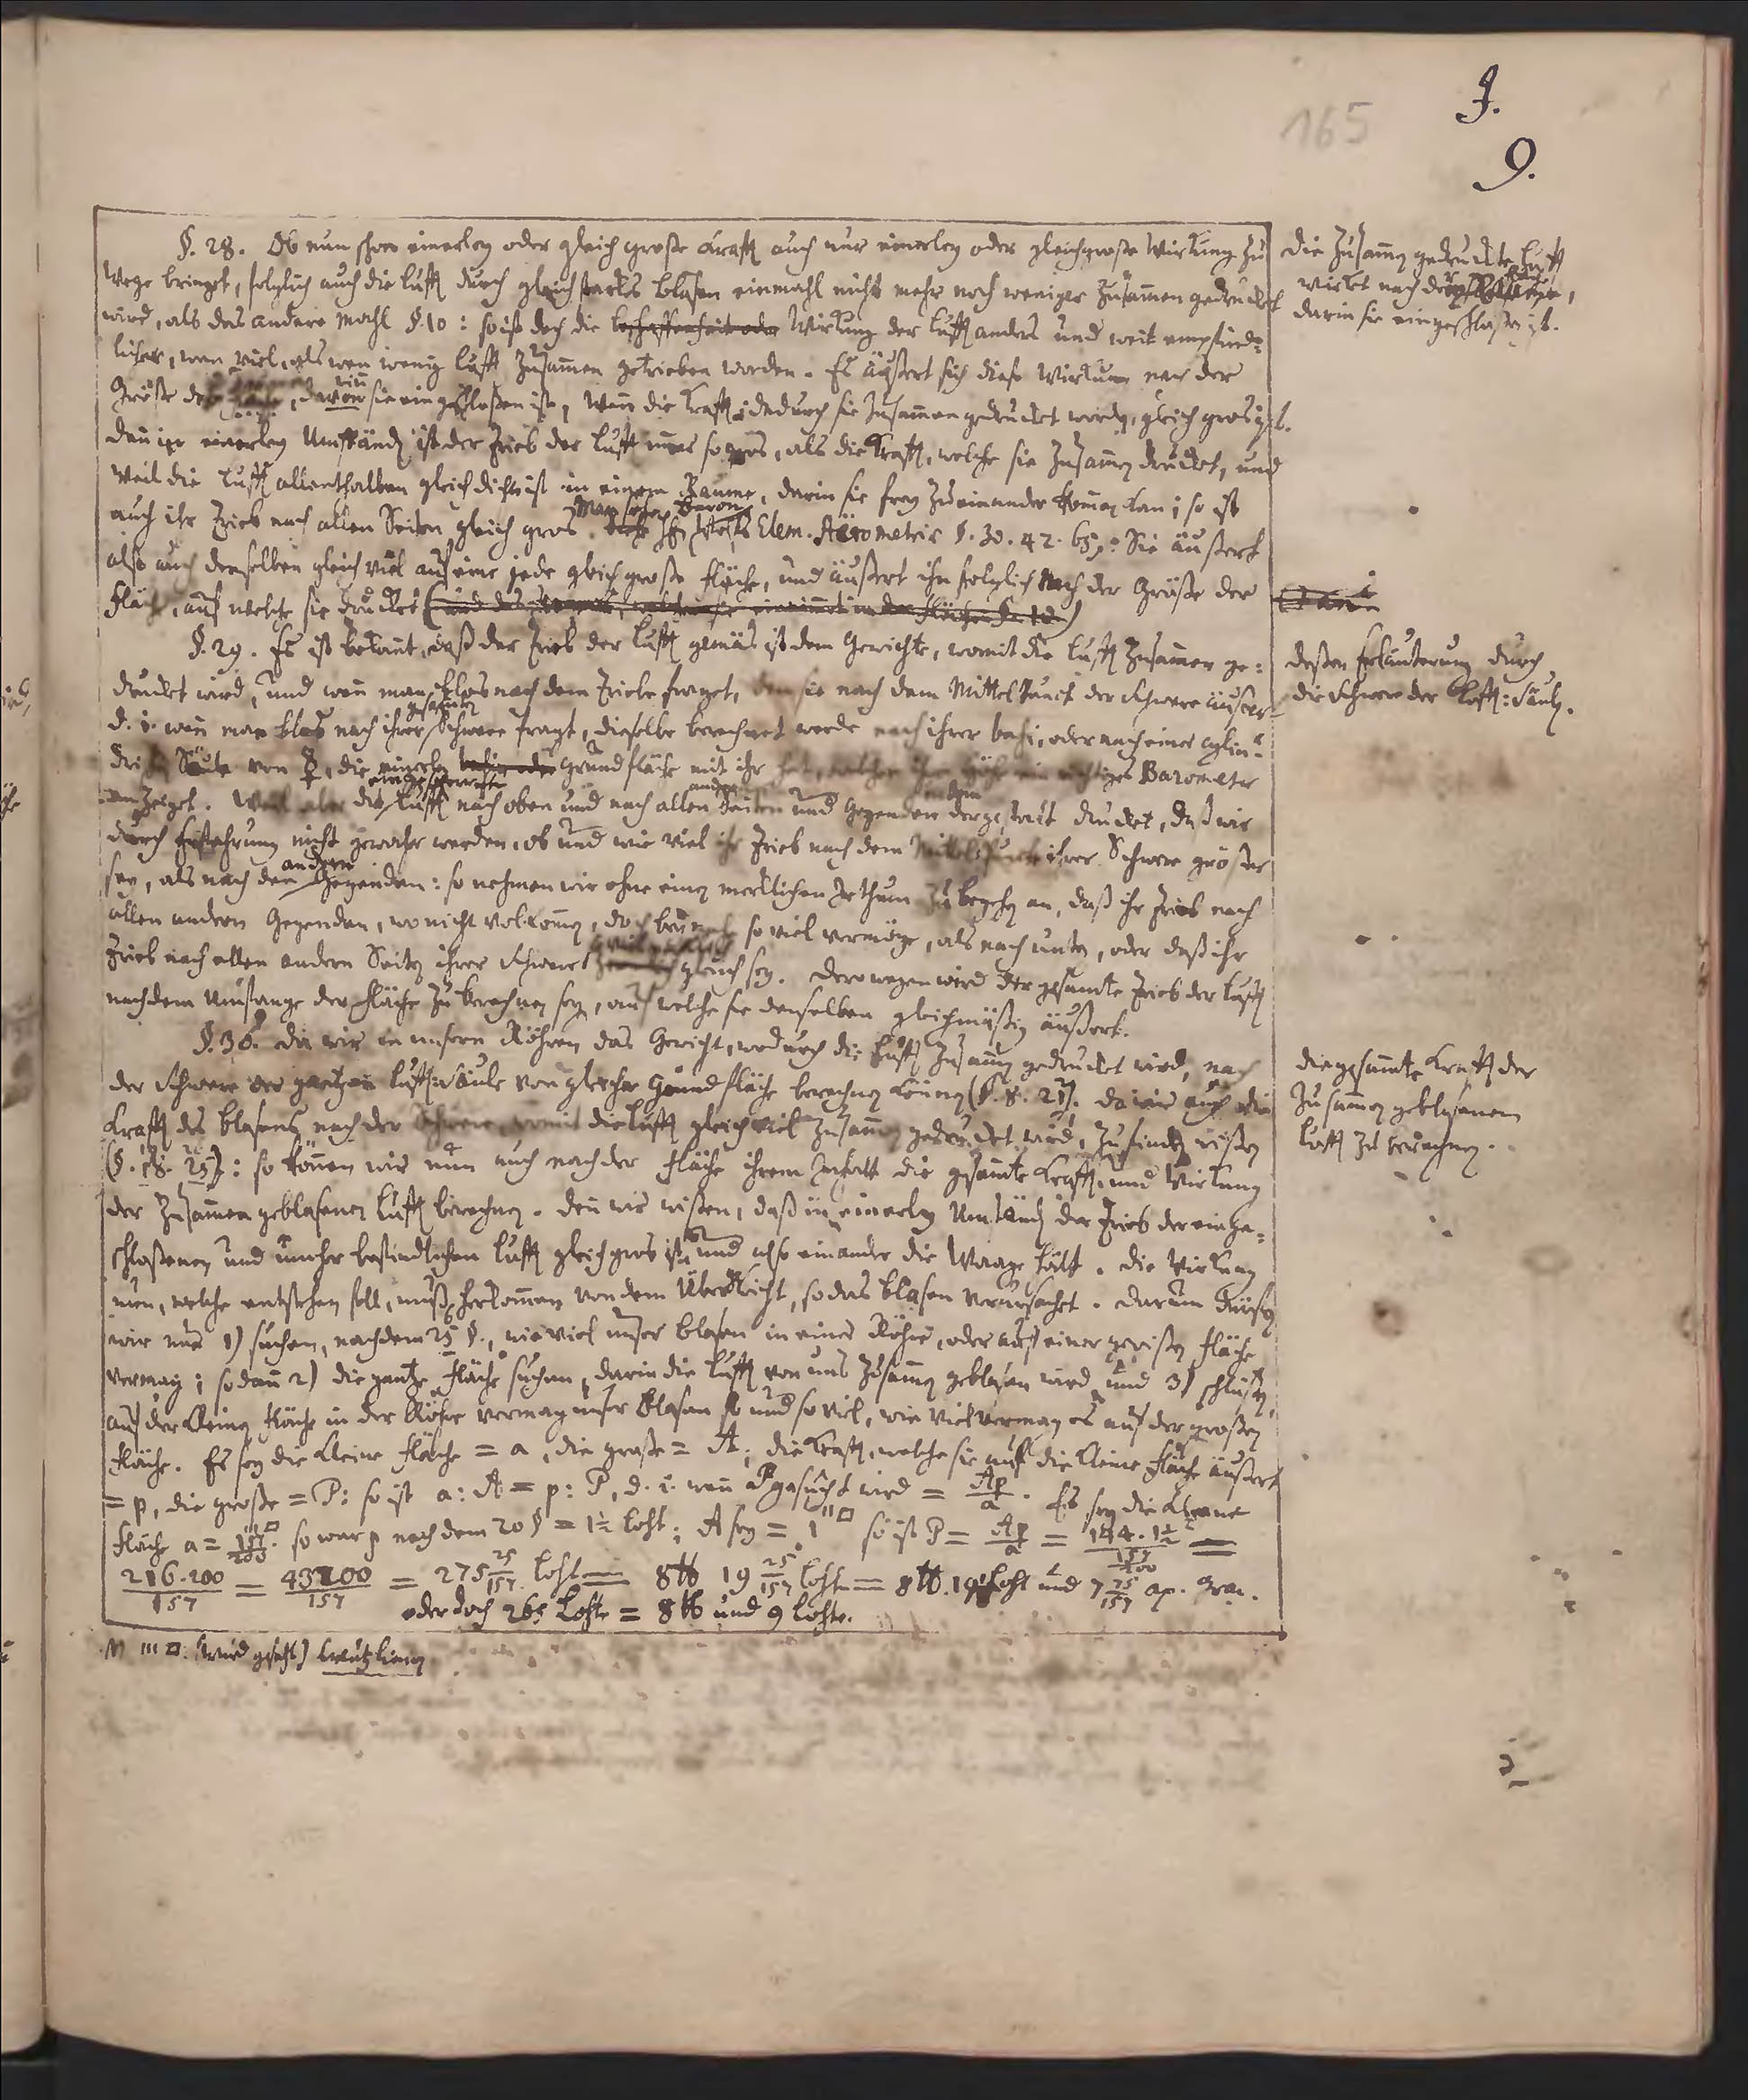 165
J.
9.
§. 28. Ob nun schon einerley oder gleich große Krafft auch nur einerley oder gleichgroße Wirkung zu
wege bringet, folglich auch die Lufft durch gleich starkes Blasen einmahl nicht mehr noch weniger zusammen gedruckt
wird, als das andere mahl §. 10: so ist doch die beschaffenheit oder Wirkung der Lufft anders und weit empfind-
licher, wen viel, als wen wenig Lufft zusammen getrieben worden. Es äußert sich diese Wirkung nach der
Größe der , darin sie eingeschloßen ist, wenn die Krafft, dadurch sie zusammen gedrucket worden, gleich gros ist.
Denn in einerley Umständen ist der Trieb der Lufft immer so gros, als die Krafft, welche sie zusammen drucket, und
weil die Lufft allenthalben gleich dicht ist in einem Raume, darin sie frey zu einander kommen kan; so ist
auch ihr Trieb nach allen Seiten gleich gros. Man sehe Baron Wolfs Elem. Aërometriæ §. 30. 42. 65. Sie äußert
also auch denselben gleich viel auf eine jede gleich große Fläche, und äußert ihn folglich nach der Größe der
Fläche, auf welche sie drucket
§. 29. Es ist bekannt, daß der Trieb der Lufft gemäs ist dem Gewichte, womit die Lufft zusammen ge-
drucket wird, und wenn man blos nach dem Triebe fraget, den sie nach dem Mittel Punct der Schwere äußert
d. i. wenn man blos nach ihrer gesamten Schwere fragt, dieselbe berechnet werde nach ihrer basi, oder nach einer cylin-
drischen Säule von ☿, die einerley basin oder Grundfläche mit ihr hat, welcher ihre Höhe ein richtiges Barometer
anzeiget. Weil aber die eingesperrte Lufft nach oben und nach allen andern Seiten und Gegenden dergestalt drucket, daß wir
durch Erfahrung nicht gewahr werden, ob und wie viel ihr Trieb nach dem Mittelpunct ihrer Schwere größer
sey, als nach den andern Gegenden: so nehmen wir ohne einen mercklichen Irthum zu begehen an, daß ihr Trieb nach
allen andern Gegenden, wo nicht vollkommen, doch beynahe so viel vermöge, als nach unten, oder daß ihr
Trieb nach allen andern Seiten ihrer Schwere gleich sey. Derowegen wird der gesamte Trieb der Lufft
nach dem Umfange der Fläche zu berechnen seyn, auf welche sie denselben gleichmäßig äußert.
§. 30. Da wir in unsern Röhren das Gewicht, wodurch die Lufft zusammen gedrucket wird, nach
der Schwere der gantzen Lufft-Säule von gleicher Grundfläche berechnen können (§. 8. 21). da wir auch die
Krafft des Blasens nach der Schwere, womit die Lufft gleich viel zusammen gedrucket wird, zu finden wißen
(§. 18. 25): so können wir nun auch nach der Fläche ihrem Inhalt die gesamte Krafft und Wirkung
der zusammen geblasenen Lufft berechnen. Denn wir wißen, daß in einerley Umständen der Trieb der einge-
schloßenen und umher befindlichen Lufft gleich gros ist, und also einander die Waage hält. Die Wirkung
nun, welche entstehen soll, muß herkommen von dem Übergewicht, so das Blasen verursachet. Darum dürfen
wir nur 1) suchen, nach dem 25 §., wie viel unser Blasen in einer Röhre, oder auf einer gewißen Fläche
vermag; sodann 2) die gantze Fläche suchen, darin die Lufft von uns zusammen geblasen wird und 3) schlüßen,
auf der kleinen Fläche in der Röhre vermag unser Blasen so und so viel, wie viel vermag es auf der großen
Fläche. Es sey die kleine Fläche = a, die große = A; die Krafft, welche sie auf die kleine Fläche äußert
= p, die große = P: so ist a : A = p : P, d. i. wenn P gesucht wird = Ap/a. Es sey die kleine
Fläche a = 157/200 '''□. so war p nach dem 20 § = 1½ Loht; A sey = 1''□ so ist P = Ap/a = 144. 1½ / 157/200 =
216.200/157 = 43200/157 = 275 25/157 Loht = 8 ℔ 19 25/157 Loht = 8 ℔. 19 Loht und 7 75/157 ap. Gran.
oder doch 265 Lohte = 8 ℔ und 9 Lohte.
'''□. (wird gesetzt)
Die zusammen gedruckte Lufft
wirkt nach der ,
darin sie eingeschloßen ist.
deßen Erläuterung durch
die Schwere der Lufft-Säule.
die gesammte Krafft der
zusammen geblasenen
Lufft zu berechnen.